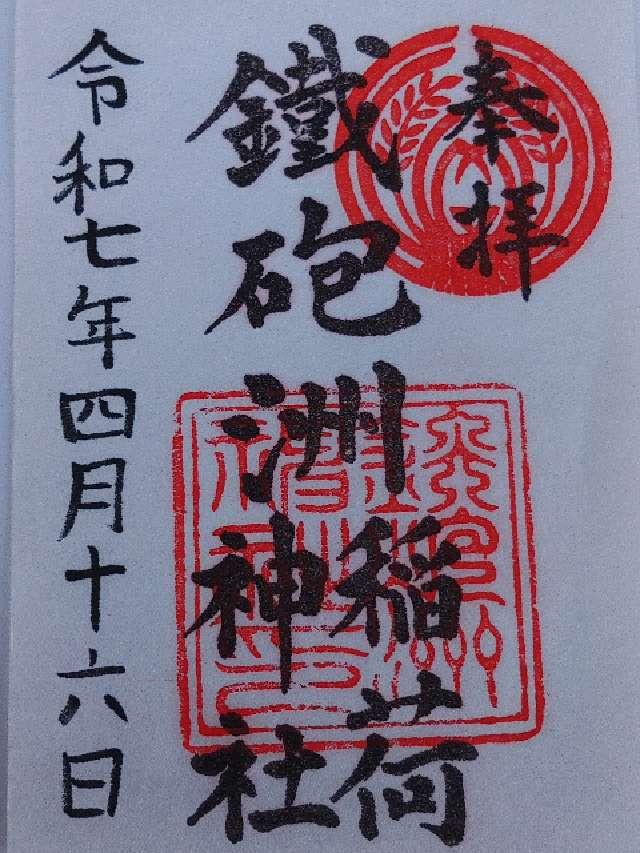 奉拝
鐵砲洲稲荷
神社
令和七年四月十六日